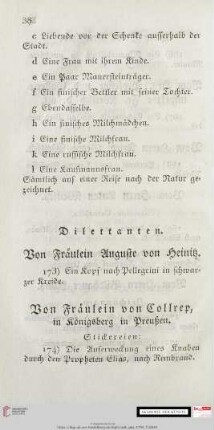 38
c Liebende vor der Schenke ausserhalb der
Stadt.
d Eine Frau mit ihrem Kinde.
e Ein Paar Mauersteinträger.
f Ein finischer Bettler mit seiner Tochter.
g Ebendasselbe.
h Ein finisches Milchmädchen.
i Eine finische Milchfrau.
k Eine russische Milchfrau.
l Eine Kaufmannsfrau.
Sämtlich auf einer Reise nach der Natur ge-
zeichnet.
Dilettanten.
Von Fräulein Auguste von Heinitz.
173) Ein Kopf nach Pellegrini in schwar-
zer Kreide.
Von Fräulein von Collrep,
in Königsberg in Preußen.
Stickereien:
174) Die Auferweckung eines Knaben
durch den Propheten Elias, nach Rembrand.